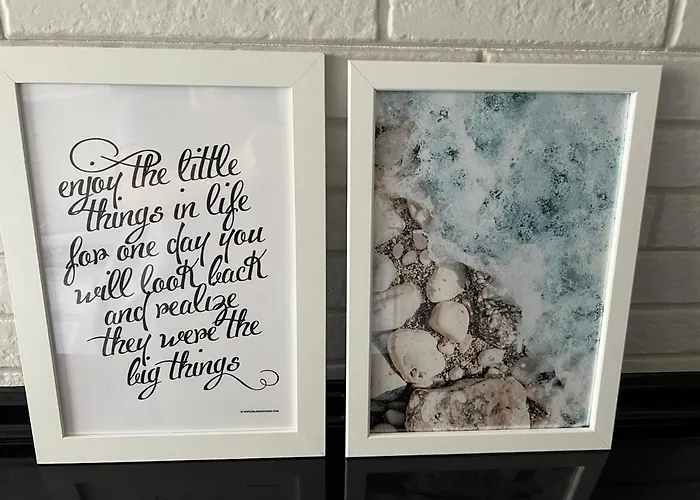 enjoy the little
things in life
for one day you
will look back
and realize
they were the
big things